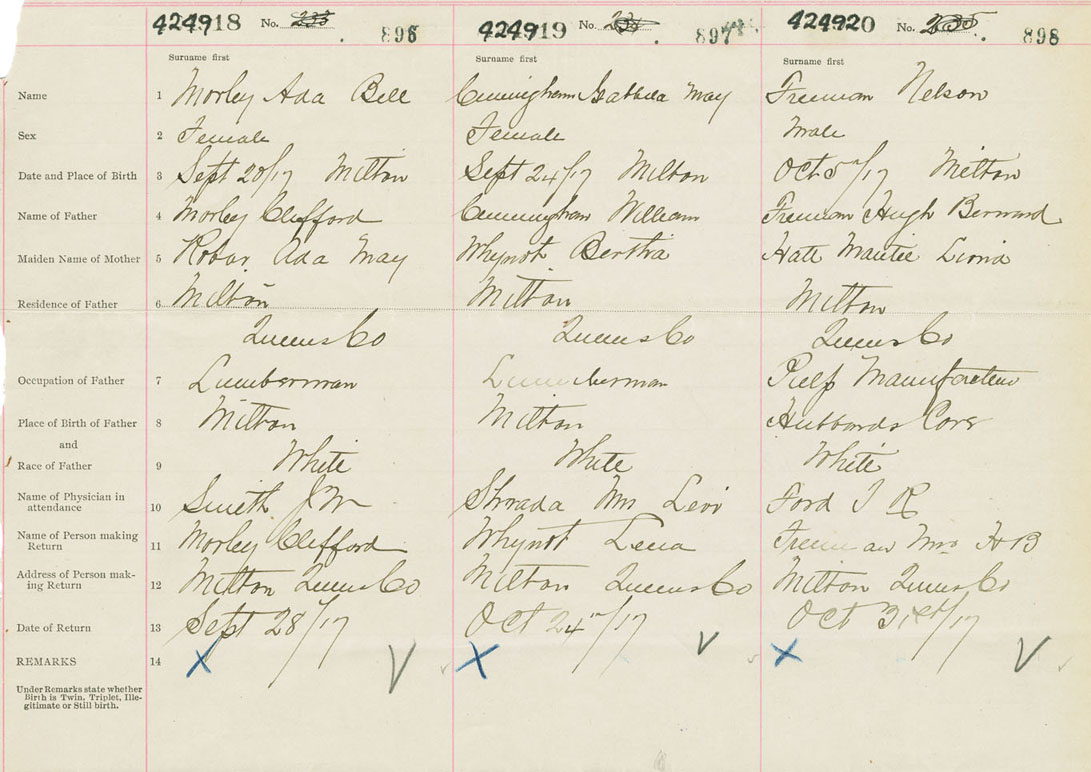 424918 No. 233 896
424919 No. 897
42492​0 No. 235 898
Surname first Surname first Surname first
Name 1 Morley Ada Bell Cunningham Isabbela May Freeman Nelson
Sex 2 Female Female Male
Date and Place of Birth 3 Sept 20/17 Milton Sept 24/17 Milton Oct 5th/17 Milton
Name of Father 4 Morley Clifford Cunningham William Freeman Hugh Bernard
Maiden Name of Mother 5 Robar Ada May Whynot Bertha Hatt
Residence of Father 6 Milton Milton Milton
Queens Co Queens Co Queens Co
Occupation of Father 7 Lumberman Lumberman Pulp Manufacturer
Place of Birth of Father 8 Milton Milton Hubbards Cove
and
Race of Father 9 White White White
Name of Physician in
attendance 10 Smith J W Mrs Levi Ford T R
Name of Person making
Return 11 Morley Clifford Whynot Lena Freeman Mrs H B
Address of Person mak-
ing Return 12 Milton Queens Co Milton Queens Co Milton Queens Co
Date of Return 13 Sept 28/17 Oct 24th/17 Oct 31st/17
REMARKS 14 X X X
Under Remarks state whether
Birth is Twin, Triplet, Ille-
gitimate or Still birth.